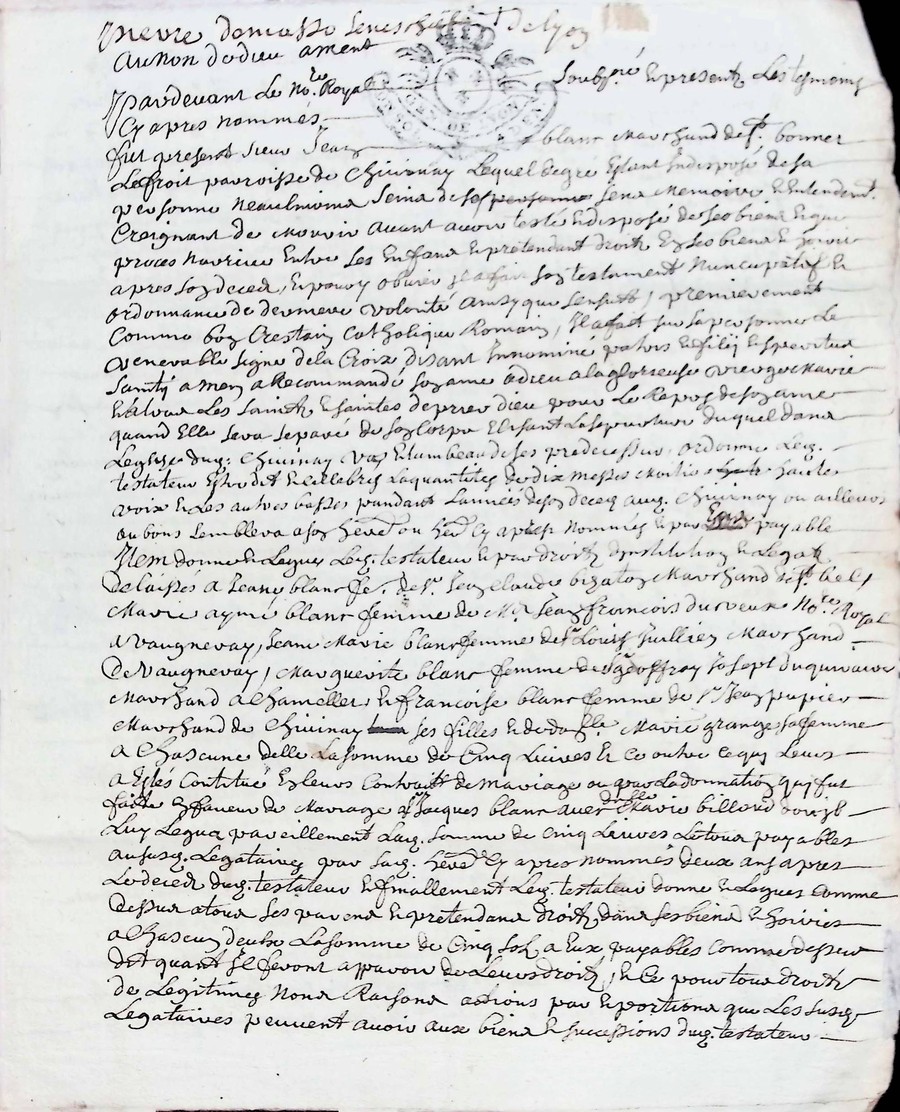 Au Nom de dieu ament
Pardevant Le No.re Royal soubsigné & present Les tesmoins
Cy apres Nommés
fut present sieur Jean blanc Marchand de
Lefroit parroisse de Chivinay Lequel degré Estant Indisposé de sa
personne Neaulmoins Seins de ses sens Memoire & Entendem.t
Creignant de Mourir avant avoir testé & disposé de ses biens & que
proces Narrive Entre Ses Enfans & prétendant droit En ses biens &
apres son deces, & pour y obvier Il a fait son testament Nuncupatif &
ordonnance de derniere volonté Ainsy que sensuit, premierement
Comme bon Crestien Catholique Romain, Il a fait sur sa personne Le
Venerable signe de la Croix disant Innomine patris & filii & spiritus
Santy amen a Recommandé son ame a dieu a la glorieuse vierge Marie
& a tous Les Saints & saintes de prier dieu pour Le Repos de son ame
quand Elle sera separé de son Corps Elisant La sepulture duquel dans
Leglise dud. Chivinay & tombeau de ses predecesseur, ordonne Led.
testateur Estre dit & cellebrés La quantités de dix Messes Moitie haute
voix & Les autres basses pendant L'année de son deces aud. Chivinay ou ailleurs
ou bons semblera a son here ou here Cy apres Nommés & par payable
Item donne & Legue Led. testateur & par droit dinstitution & Legat
delaissés a Jeane blanc fe. de Sr. Jean claude bizaton Marchand
Marie aymé blanc femme de Mr. Jean francois duvreux No.re Royal
a Vaugneray, Jeane Marie blanc femme de Sr Louis Jullien Marchand
de Vaugneray, Marguerite blanc femme de Sr geoffray Josept
Marchand a Chamelles, & francoise blanc femme de Sr Jean pupier
Marchand de Chivinay ses filles & de defte. Marie grange sa femme
a Chascune delle La somme de Cinq Livres & ce outre ce quy Leurs
a Estés Contitué En leurs Contraits de Mariage ou par La donnation quy fut
faitte En faveur de Mariage a Sr Jacques blanc avec dlle Marie billoud
Luy Legue pareillement Lad. somme de Cinq Livres Le tous payables
au susd. Legataires par sad. here Cy apres nommés deux ans apres
Le deces dud. testateur & finallement Led. testateur donne & Legues Comme
dessus a tous ses parens & prétendans droit dans ses biens & hoiries
a Chascun deulx La somme de Cinq sol a Eux payables comme dessus
dit quant Il feront apparoir de Leurs droits, & ce pour tous droits
de Legitimes Noms Raisons actions part & portions que Les susd.
Legataires peuvent avoir aux biens & successions dud. testateur